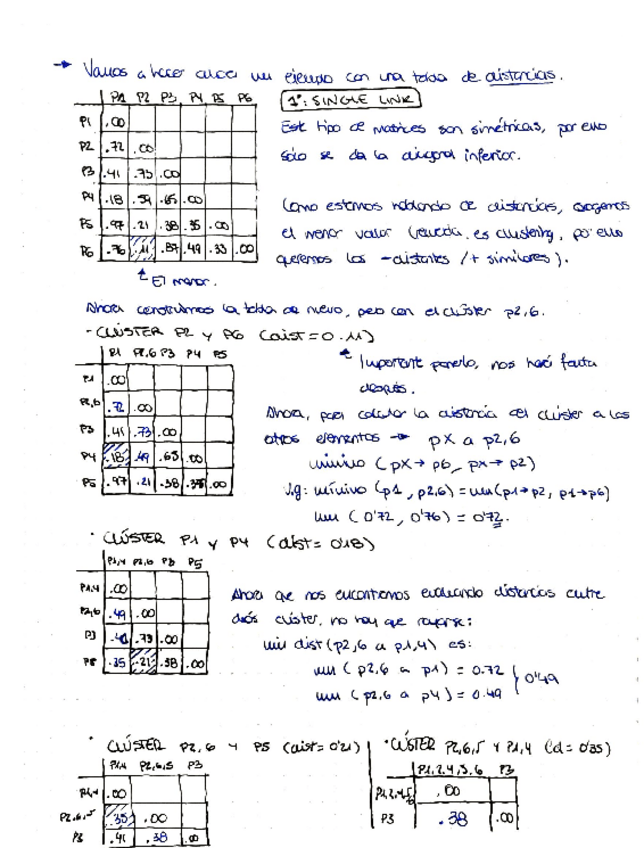 → Vamos a hacer ahora un ejemplo con una tabla de distancias.
P1 P2 P3 P4 P5 P6
1º: SINGLE LINK
P1 .00
P2 .72 .00
P3 .41 .73 .00
P4 .18 .59 .65 .00
P5 .97 .21 .38 .35 .00
P6 .76 .11 .87 .49 .33 .00
Este tipo de matrices son simétricas, por ello
sólo se da la diagonal inferior.
Como estamos hablando de distancias, cogemos
el menor valor (recuerda, es clustering, por ello
queremos los -distantes /+ similares).
↑ El menor.
Ahora construimos la tabla de nuevo, pero con el clúster p2,6.
- CLÚSTER P2 y P6 (dist=0.11)
P1 P2,6 P3 P4 P5
P1 .00
P2,6 .72 .00
P3 .41 .73 .00
P4 .18 .49 .65 .00
P5 .97 .21 .38 .35 .00
Importante ponerlo, nos hará falta
después.
Ahora, para calcular la distancia del clúster a los
otros elementos → pX a p2,6
mínimo (pX→ p6, pX→ p2)
V.g: mínimo (p1, p2,6) = min(p1→p2, p1→p6)
min (0'72, 0'76) = 0'72.
· CLÚSTER P1 y P4 (dist= 0'18)
P1,4 P2,6 P3 P5
P1,4 .00
P2,6 .49 .00
P3 .41 .73 .00
P5 .35 .21 .38 .00
Ahora que nos encontramos evaluando distancias entre
dos clúster, no hay que rayarse:
min dist (p2,6 a p1,4) es:
min (p2,6 a p1) = 0.72
min (p2,6 a p4) = 0.49
0'49
· CLÚSTER P2,6 y P5 (dist= 0'21)
P1,4 P2,6,5 P3
P1,4 .00
P2,6,5 .35 .00
P3 .41 .38 .00
· CLÚSTER P2,6,5 Y P1,4 (d= 0'35)
P1,2,4,5,6 P3
P1,2,4,5,6 .00
P3 .38 .00